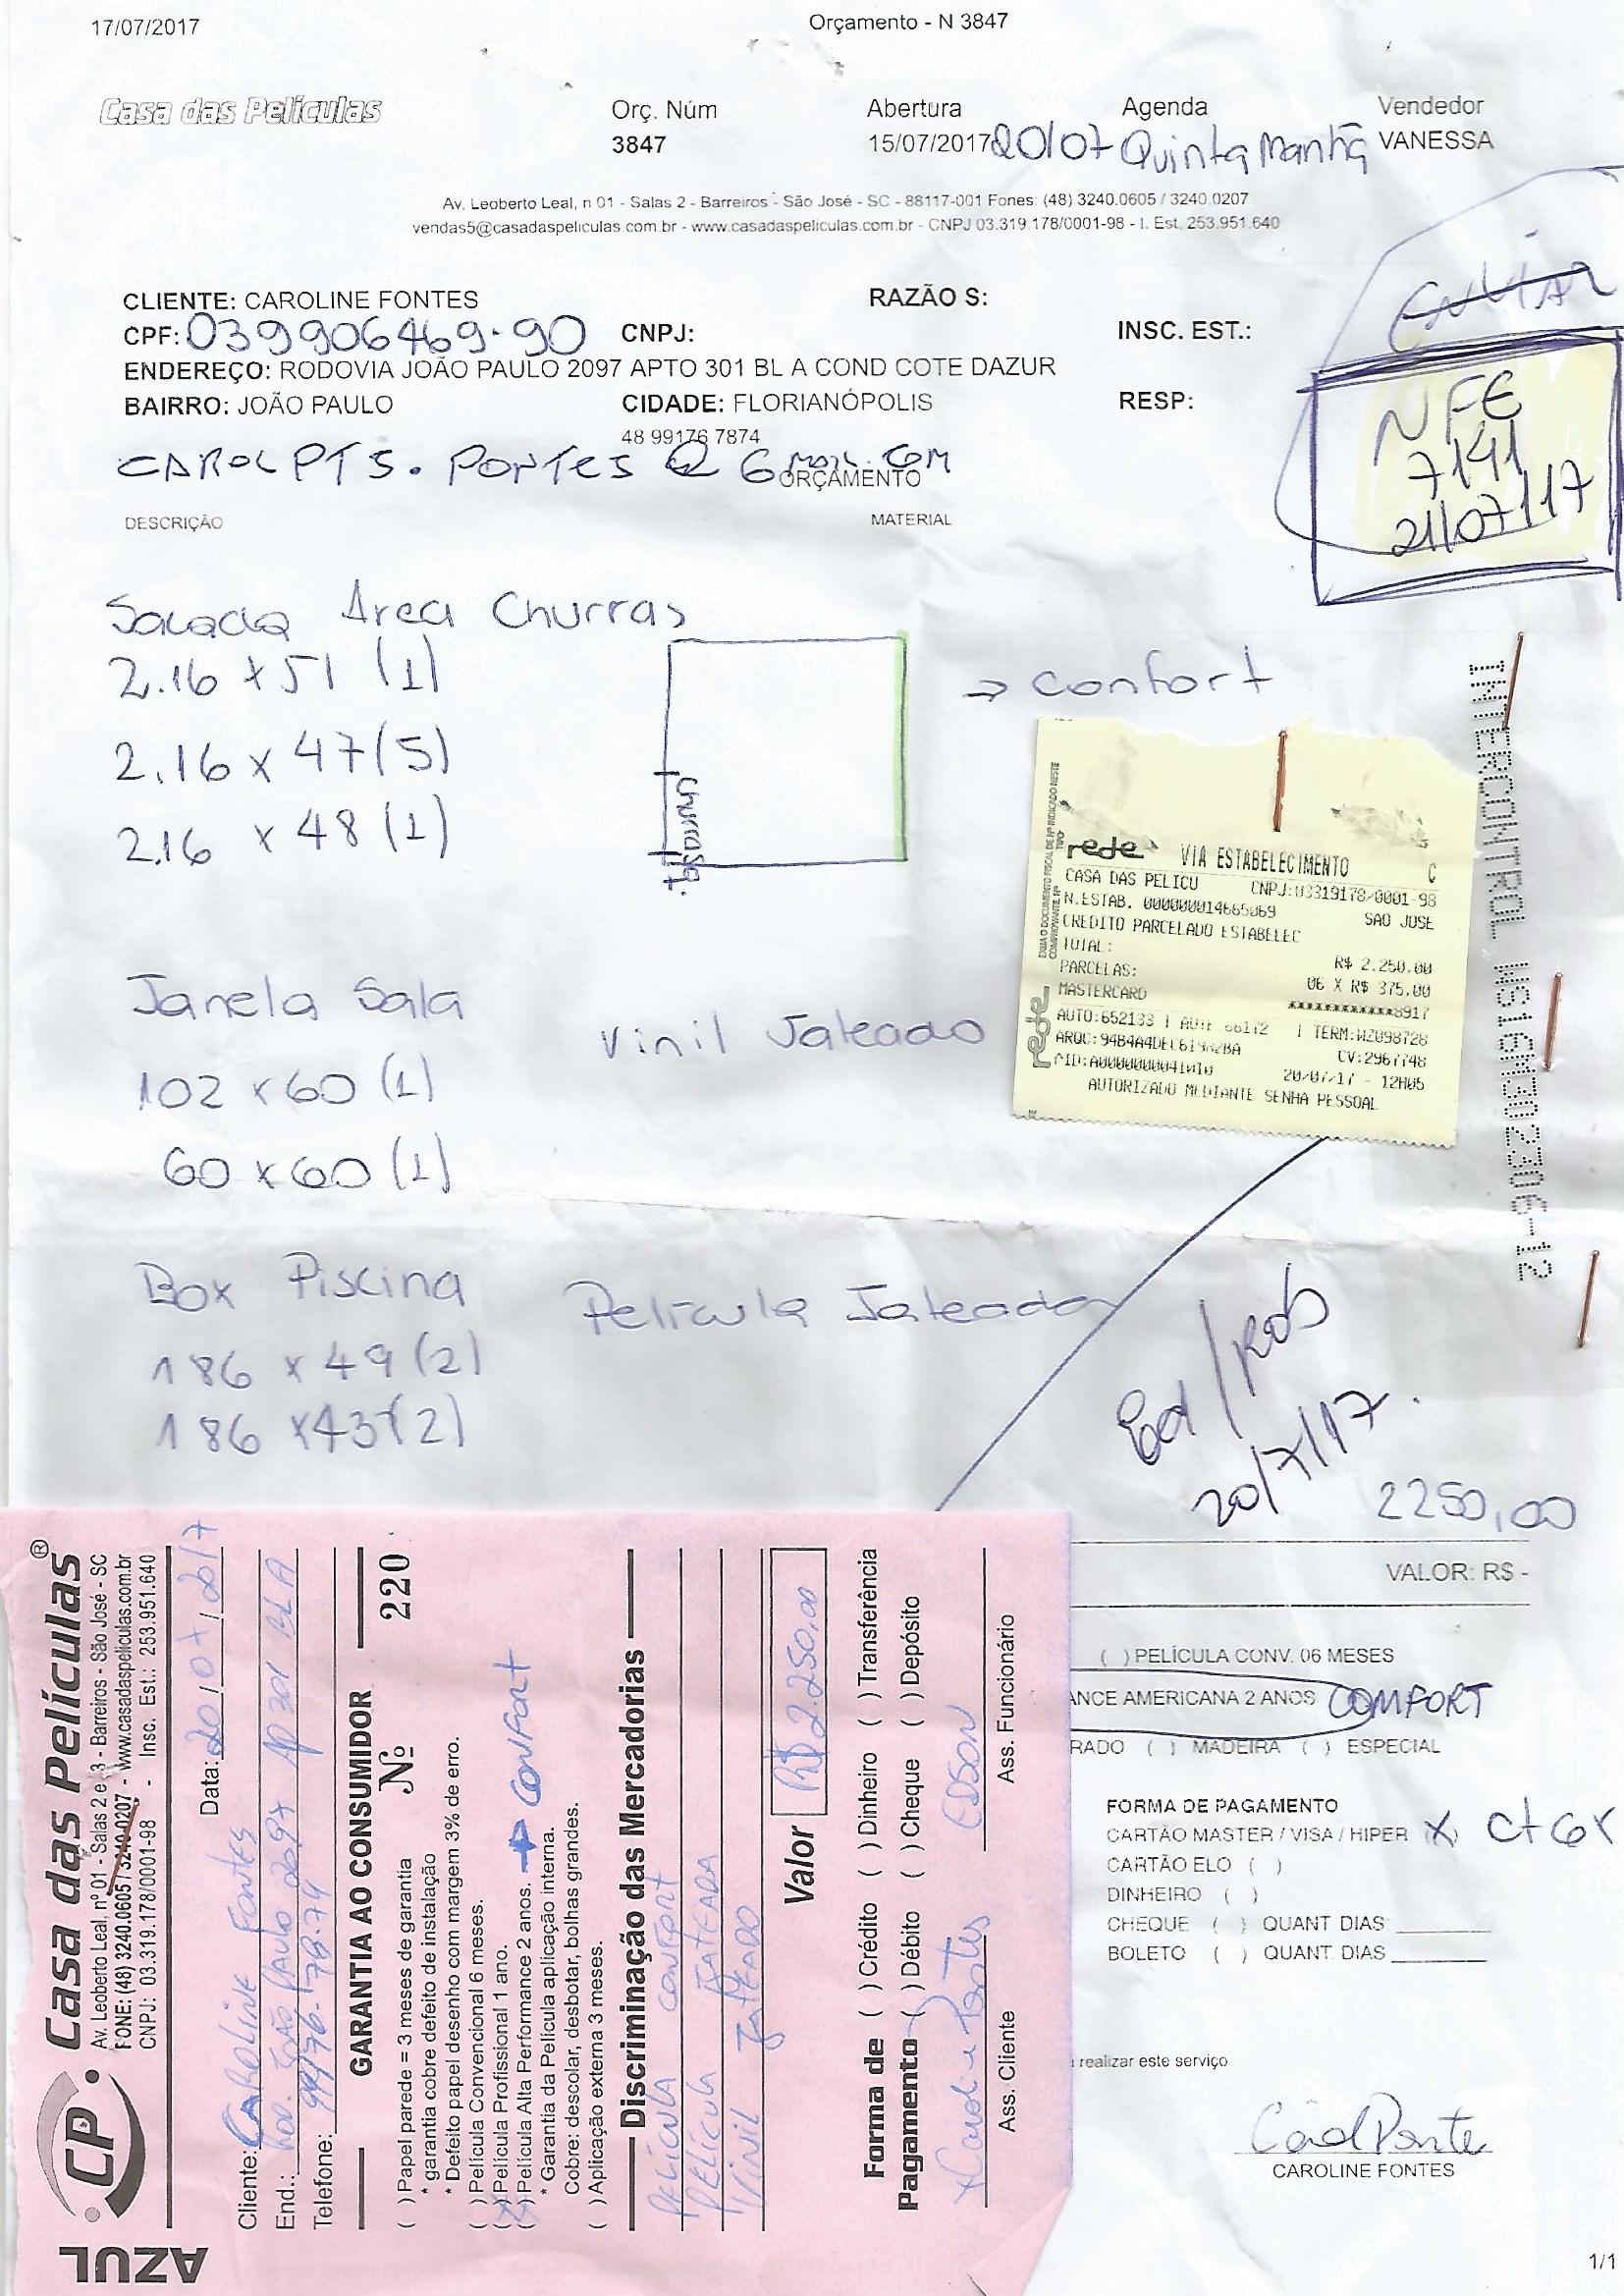 17/07/2017
Orçamento - N 3847
Casa das Películas
Orç. Núm
Abertura
Agenda
Vendedor
3847
15/07/2017
20/07 Quinta Manhã
VANESSA
Av. Leoberto Leal, n 01 - Salas 2 - Barreiros - São José - SC - 88117-001 Fones: (48) 3240.0605 / 3240.0207
vendas5@casadaspeliculas.com.br - www.casadaspeliculas.com.br - CNPJ 03.319.178/0001-98 - I. Est. 253.951.640
CLIENTE: CAROLINE FONTES
RAZÃO S:
CPF: 039906469-90
CNPJ:
INSC. EST.:
ENDEREÇO: RODOVIA JOÃO PAULO 2097 APTO 301 BL A COND COTE DAZUR
BAIRRO: JOÃO PAULO
CIDADE: FLORIANÓPOLIS
RESP:
48 99176 7874
ENVIAR
NFE
7141
21/07/17
CAROLPTS. PONTES @ Gmail.com
ORÇAMENTO
DESCRIÇÃO
MATERIAL
Sacada Area Churras
2.16 x 51 (1)
2.16 x 47 (5)
2.16 x 48 (1)
churrasq.
→ confort
INTERCONTROL MS16M302306-12
rede
VIA ESTABELECIMENTO
C
CASA DAS PELICU CNPJ:03319178/0001-98
N.ESTAB. 000000014665069 SAO JOSE
CREDITO PARCELADO ESTABELEC
TOTAL: R$ 2.250,00
PARCELAS: 06 X R$ 375,00
MASTERCARD ************8917
AUTO:652133 | AUTE:66172 | TERM:WZ098728
CV:2967748
20/07/17 - 12H05
AUTORIZADO MEDIANTE SENHA PESSOAL
rede
Janela Sala
Vinil Jateado
102 x 60 (1)
60 x 60 (1)
Box Piscina
Pelicula Jateada
186 x 49 (2)
186 x 43 (2)
Ed / Rob
20/7/17.
2250,00
VALOR: R$ -
( ) PELÍCULA CONV. 06 MESES
ANCE AMERICANA 2 ANOS COMFORT
RADO ( ) MADEIRA ( ) ESPECIAL
FORMA DE PAGAMENTO
CARTÃO MASTER / VISA / HIPER (X) Ct 6x
CARTÃO ELO ( )
DINHEIRO ( )
CHEQUE ( ) QUANT DIAS:
BOLETO ( ) QUANT. DIAS
realizar este serviço
CAROLINE FONTES
1/1
AZUL
CP
Casa das Películas®
Av. Leoberto Leal, nº 01 - Salas 2 e 3 - Barreiros - São José - SC
FONE: (48) 3240.0605 / 3240-0207 - www.casadaspeliculas.com.br
CNPJ: 03.319.178/0001-98 - Insc. Est.: 253.951.640
Data: 20/07/2017
Cliente: CAROLINE FONTES
End.: Rod. João Paulo 2097 AP 301 BL A
Telefone: 99176-78-74
GARANTIA AO CONSUMIDOR
Nº 220
( ) Papel parede = 3 meses de garantia
* garantia cobre defeito de instalação
* Defeito papel desenho com margem 3% de erro.
( ) Película Convencional 6 meses.
(X) Película Profissional 1 ano.
(X) Película Alta Performance 2 anos. → CONFORT
* Garantia da Película aplicação interna.
Cobre: descolar, desbotar, bolhas grandes.
( ) Aplicação externa 3 meses.
Discriminação das Mercadorias
PELÍCULA CONFORT
PELÍCULA JATEADA
VINIL JATEADO
Valor R$ 2.250,00
Forma de Pagamento
( ) Crédito ( ) Dinheiro ( ) Transferência
( ) Débito ( ) Cheque ( ) Depósito
EDSON
Ass. Cliente
Ass. Funcionário